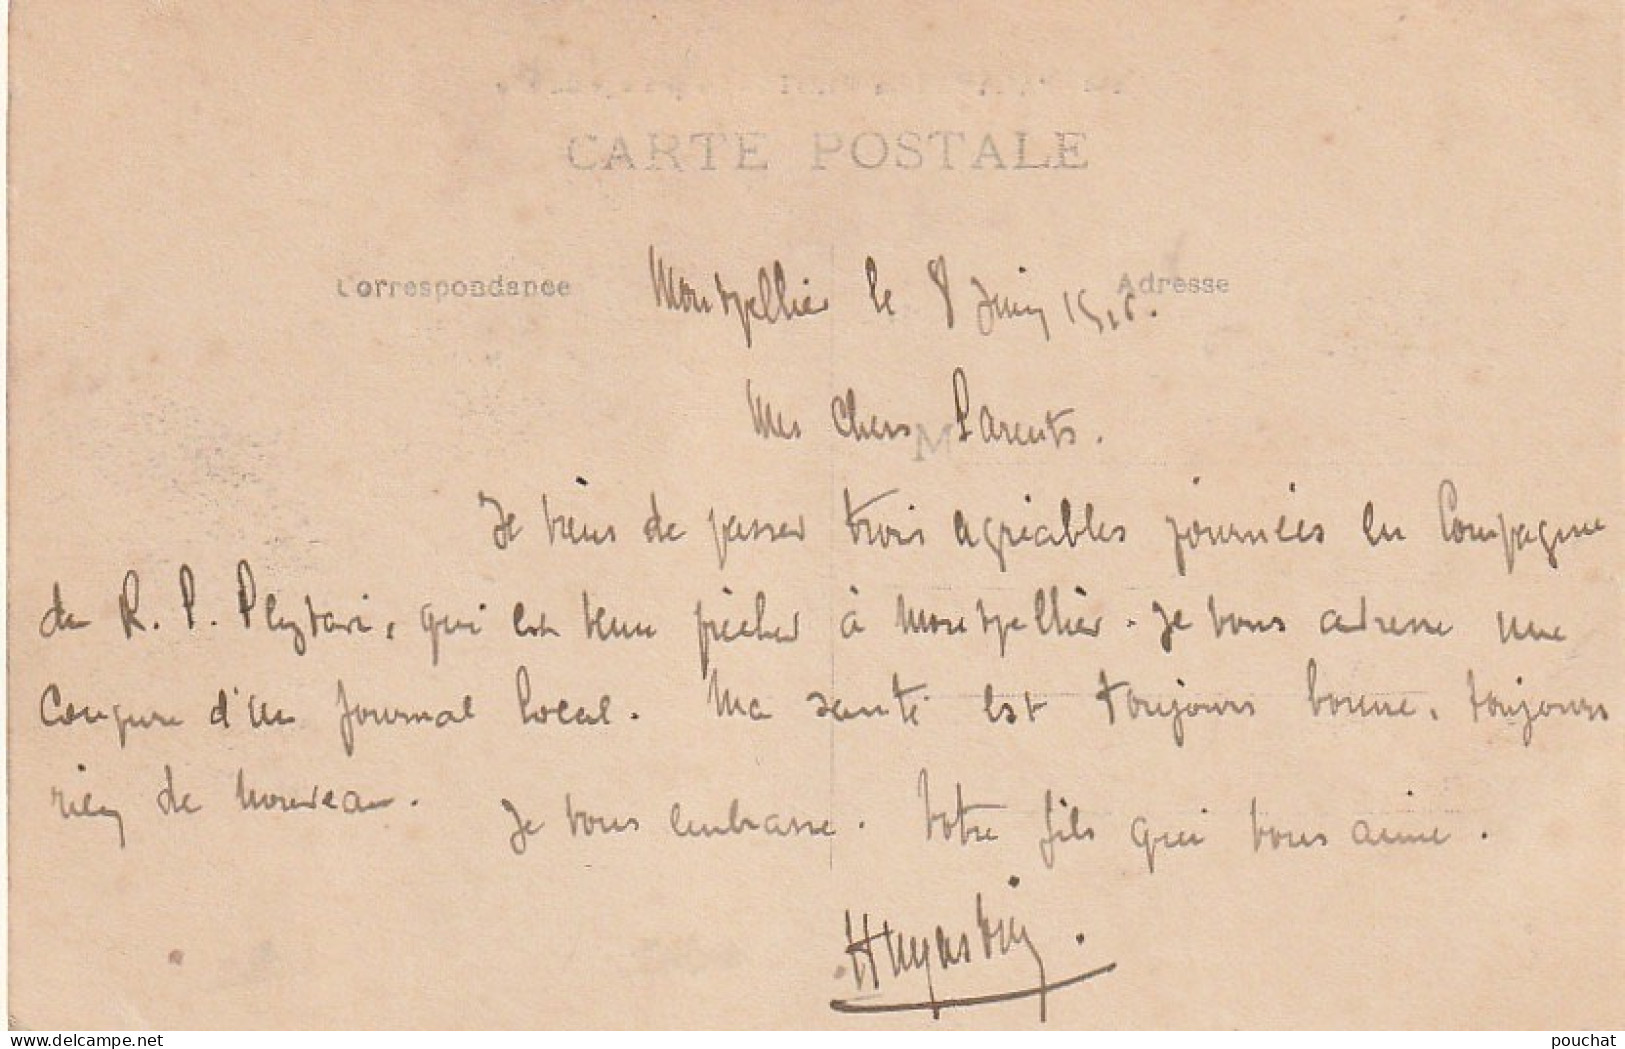 CARTE POSTALE
Correspondance
Adresse
Montpellier le 8 Juin
Mes Chers Parents.
Je viens de passer trois agréables journées en Compagnie
du R. P. qui est venu prêcher à Montpellier. Je vous adresse une
Coupure d'un Journal Local. Ma santé est toujours bonne, toujours
rien de nouveau.
Je vous embrasse. Votre fils qui vous aime.
delcampe.net
pouchat